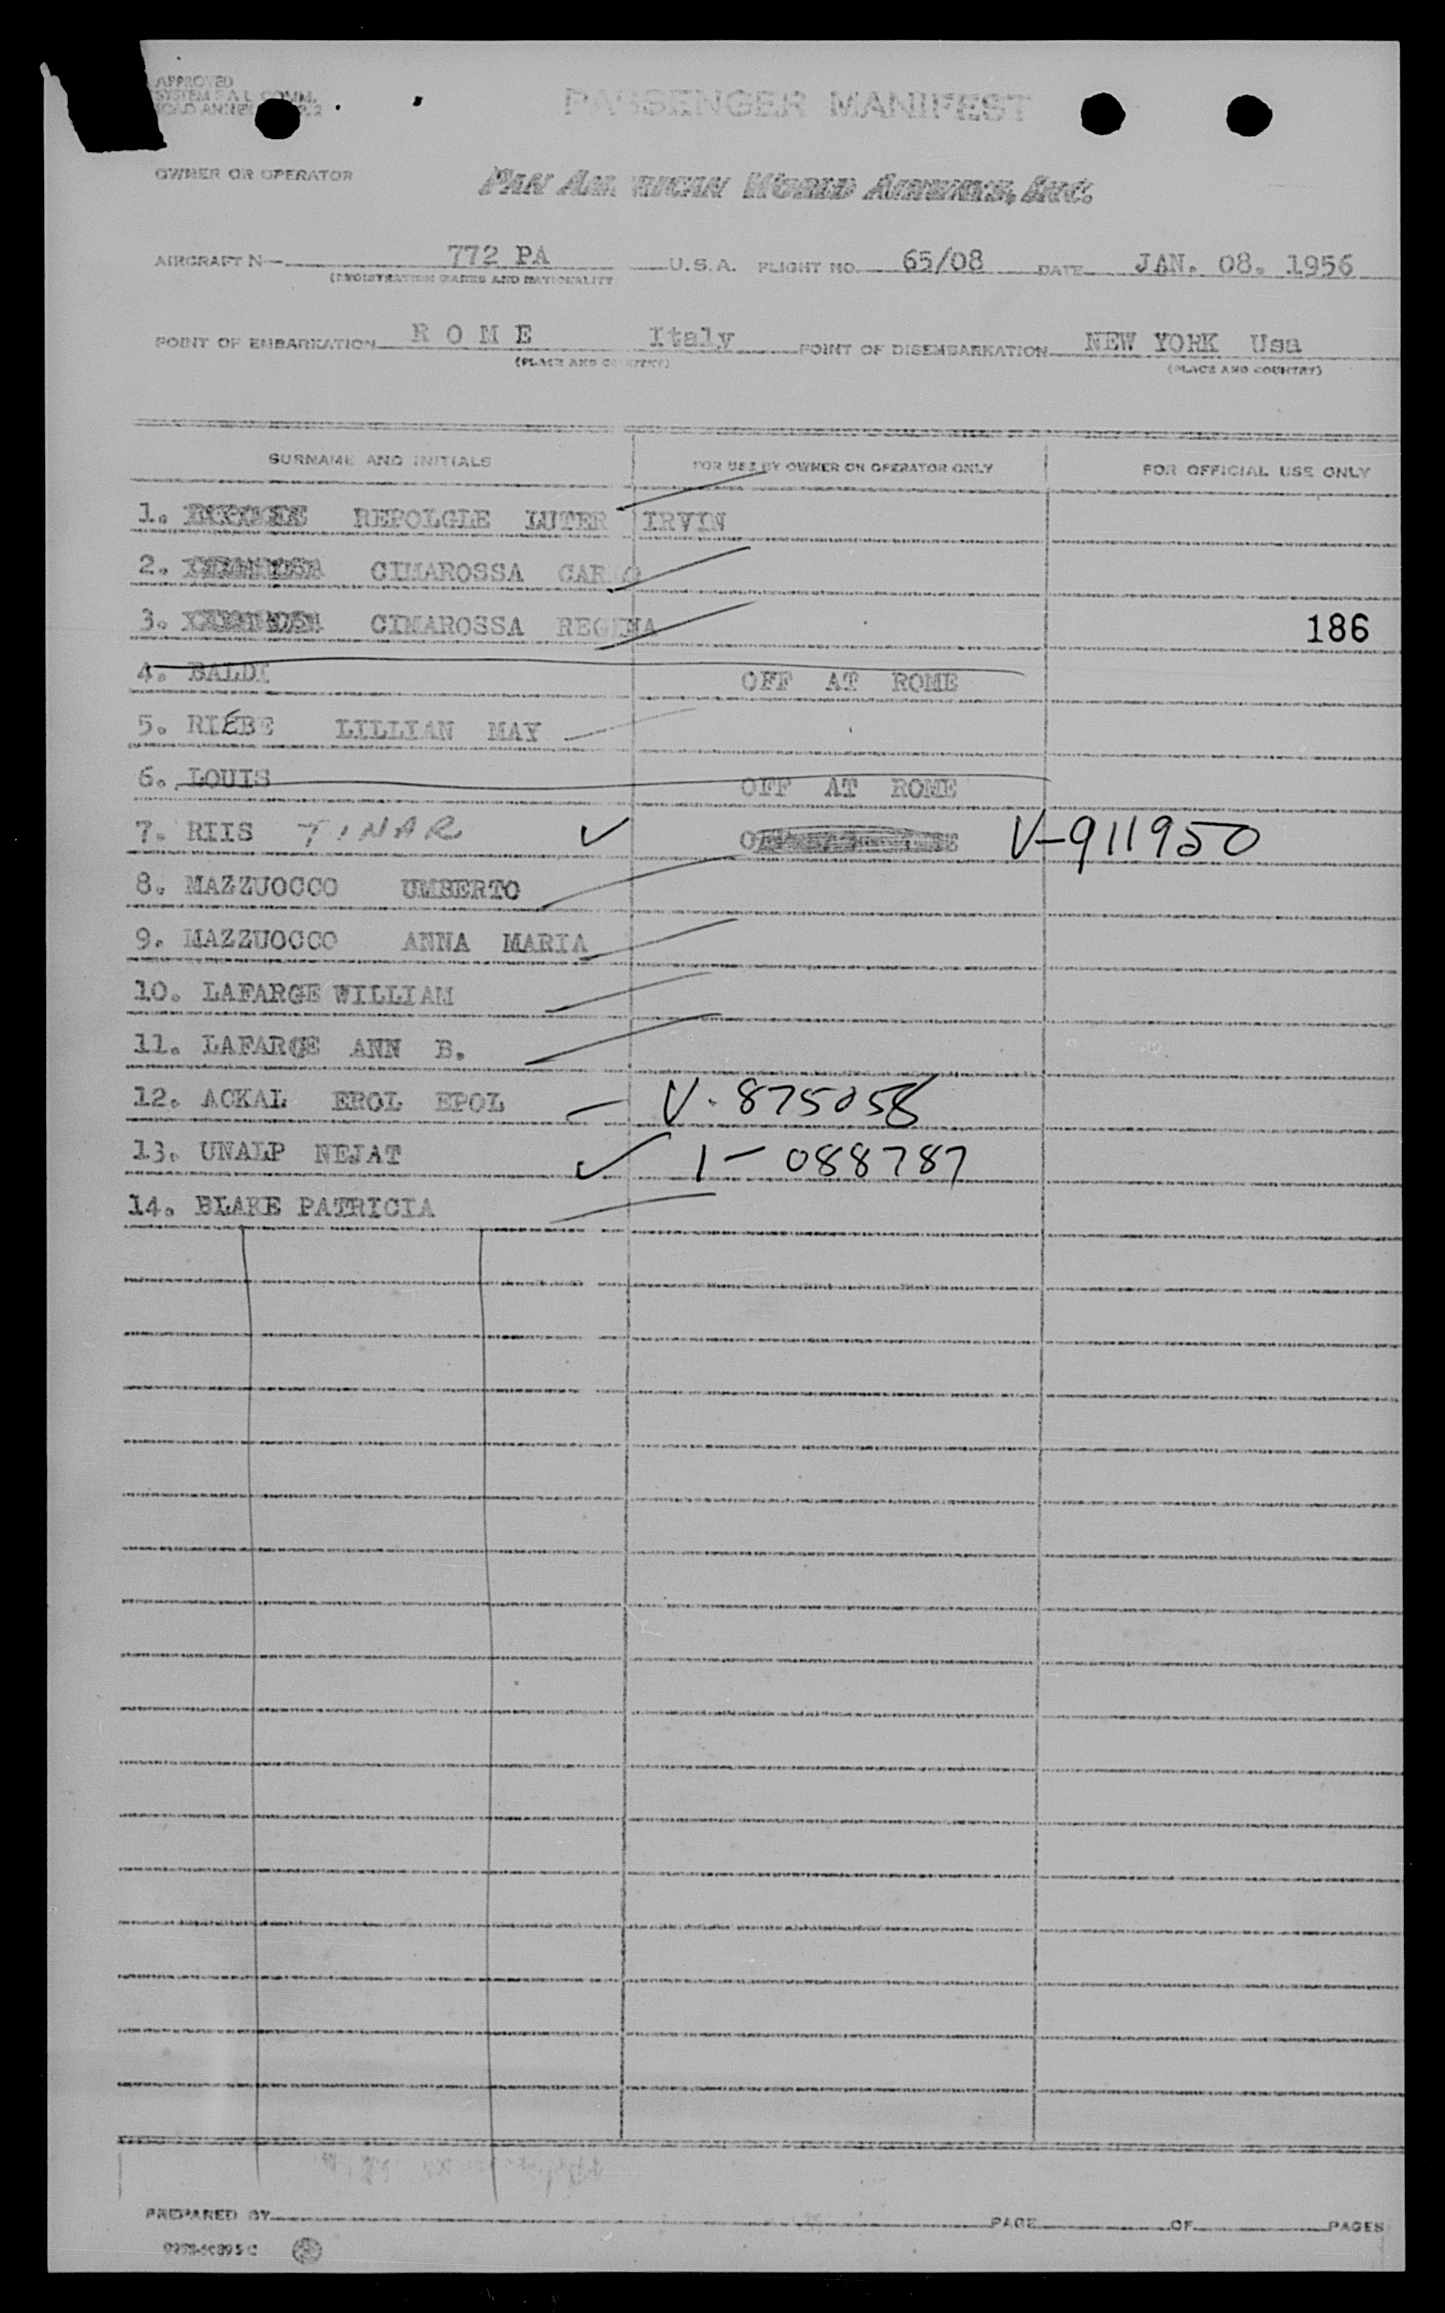 APPROVED
SYSTEM F.A.L. COMM.
PASSENGER MANIFEST
OWNER OR OPERATOR
PAN AMERICAN WORLD AIRWAYS, INC.
AIRCRAFT N- 772 PA U.S.A. FLIGHT NO. 65/08 DATE JAN. 08. 1956
(REGISTRATION MARKS AND NATIONALITY
POINT OF EMBARKATION R O M E Italy POINT OF DISEMBARKATION NEW YORK Usa
(PLACE AND COUNTRY) (PLACE AND COUNTRY)
SURNAME AND INITIALS FOR USE BY OWNER OR OPERATOR ONLY FOR OFFICIAL USE ONLY
1. REPOLGLE LUTER IRVIN
2. CIMAROSSA CARLO
3. CIMAROSSA REGINA 186
4. BALDI OFF AT ROME
5. RIEBE LILLIAN MAY
6. LOUIS OFF AT ROME
7. RIIS TINAR V-911950
8. MAZZUOCCO UMBERTO
9. MAZZUOCCO ANNA MARIA
10. LAFARGE WILLIAM
11. LAFARGE ANN B.
12. ACKAL EROL EPOL V-875058
13. UNALP NEJAT 1-088787
14. BLAKE PATRICIA
PREPARED BY PAGE OF PAGES